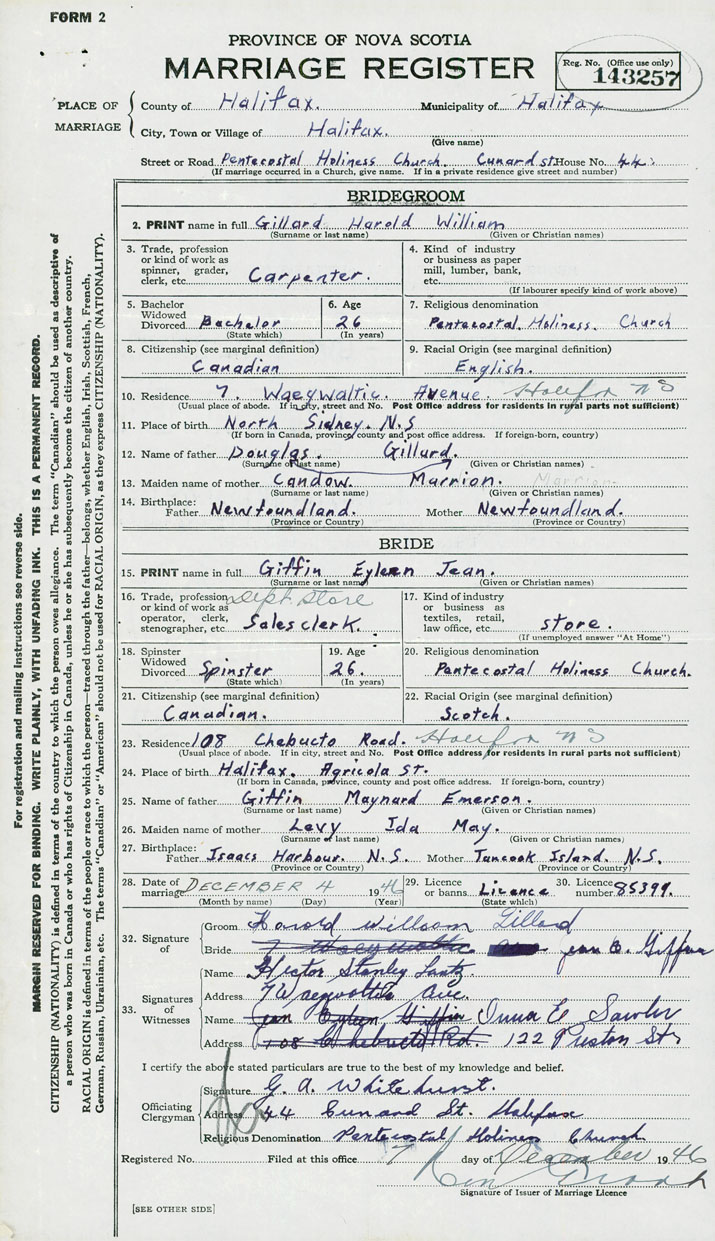 FORM 2
PROVINCE OF NOVA SCOTIA
MARRIAGE REGISTER
Reg. No. (Office use only)
143257
PLACE OF MARRIAGE
County of Halifax. Municipality of Halifax
City, Town or Village of Halifax.
(Give name)
Street or Road Pentecostal Holiness Church. Cunard st. House No. 44.
(If marriage occurred in a Church, give name. If in a private residence give street and number)
BRIDEGROOM
2. PRINT name in full Gillard Harold William
(Surname or last name) (Given or Christian names)
3. Trade, profession or kind of work as spinner, grader, clerk, etc. Carpenter.
4. Kind of industry or business as paper mill, lumber, bank, etc.
(If labourer specify kind of work above)
5. Bachelor Widowed Divorced Bachelor
(State which)
6. Age 26
(In years)
7. Religious denomination
Pentecostal. Holiness. Church
8. Citizenship (see marginal definition)
Canadian
9. Racial Origin (see marginal definition)
English.
10. Residence 7. Waegwaltic Avenue. Halifax N S
(Usual place of abode. If in city, street and No. Post Office address for residents in rural parts not sufficient)
11. Place of birth North Sidney. N.S
(If born in Canada, province, county and post office address. If foreign-born, country)
12. Name of father Douglas. Gillard.
(Surname or last name) (Given or Christian names)
13. Maiden name of mother Candow. Marrion. Marrion.
(Surname or last name) (Given or Christian names)
14. Birthplace: Father Newfoundland. Mother Newfoundland.
(Province or Country) (Province or Country)
BRIDE
15. PRINT name in full Giffin Eyleen Jean.
(Surname or last name) (Given or Christian names)
16. Trade, profession or kind of work as operator, clerk, stenographer, etc. dept. store Sales clerk.
17. Kind of industry or business as textiles, retail, law office, etc. store.
(If unemployed answer "At Home")
18. Spinster Widowed Divorced Spinster
(State which)
19. Age 26.
(In years)
20. Religious denomination
Pentecostal Holiness Church.
21. Citizenship (see marginal definition)
Canadian.
22. Racial Origin (see marginal definition)
Scotch.
23. Residence 108 Chebucto Road. Halifax N S
(Usual place of abode. If in city, street and No. Post Office address for residents in rural parts not sufficient)
24. Place of birth Halifax. Agricola St.
(If born in Canada, province, county and post office address. If foreign-born, country)
25. Name of father Giffin Maynard Emerson.
(Surname or last name) (Given or Christian names)
26. Maiden name of mother Levy Ida May.
(Surname or last name) (Given or Christian names)
27. Birthplace: Father Isaacs Harbour. N.S. Mother Tancook Island. N.S.
(Province or Country) (Province or Country)
28. Date of marriage DECEMBER 4 1946
(Month by name) (Day) (Year)
29. Licence or banns Licence
(State which)
30. Licence number 85399.
32. Signature of
Groom Harold William Gillard
Bride Jean E. Giffin
33. Signatures of Witnesses
Name Hector Stanley Lantz
Address 7 Waegwoltic Ave.
Name Jean Eyleen Giffin Anna E Sawler
Address 108 Chebucto Rd. 122 Preston St
I certify the above stated particulars are true to the best of my knowledge and belief.
Officiating Clergyman
Signature G. A. Whitehurst.
Address 44 Cunard St. Halifax
Religious Denomination Pentecostal Holiness Church
Registered No. Filed at this office 7 day of December 1946
Signature of Issuer of Marriage Licence
[SEE OTHER SIDE]
For registration and mailing instructions see reverse side.
MARGIN RESERVED FOR BINDING. WRITE PLAINLY, WITH UNFADING INK. THIS IS A PERMANENT RECORD.
CITIZENSHIP (NATIONALITY) is defined in terms of the country to which the person owes allegiance. The term "Canadian" should be used as descriptive of
a person who was born in Canada or who has rights of Citizenship in Canada, unless he or she has subsequently become the citizen of another country.
RACIAL ORIGIN is defined in terms of the people or race to which the person—traced through the father—belongs, whether English, Irish, Scottish, French,
German, Russian, Ukrainian, etc. The terms "Canadian" or "American" should not be used for RACIAL ORIGIN, as they express CITIZENSHIP (NATIONALITY).